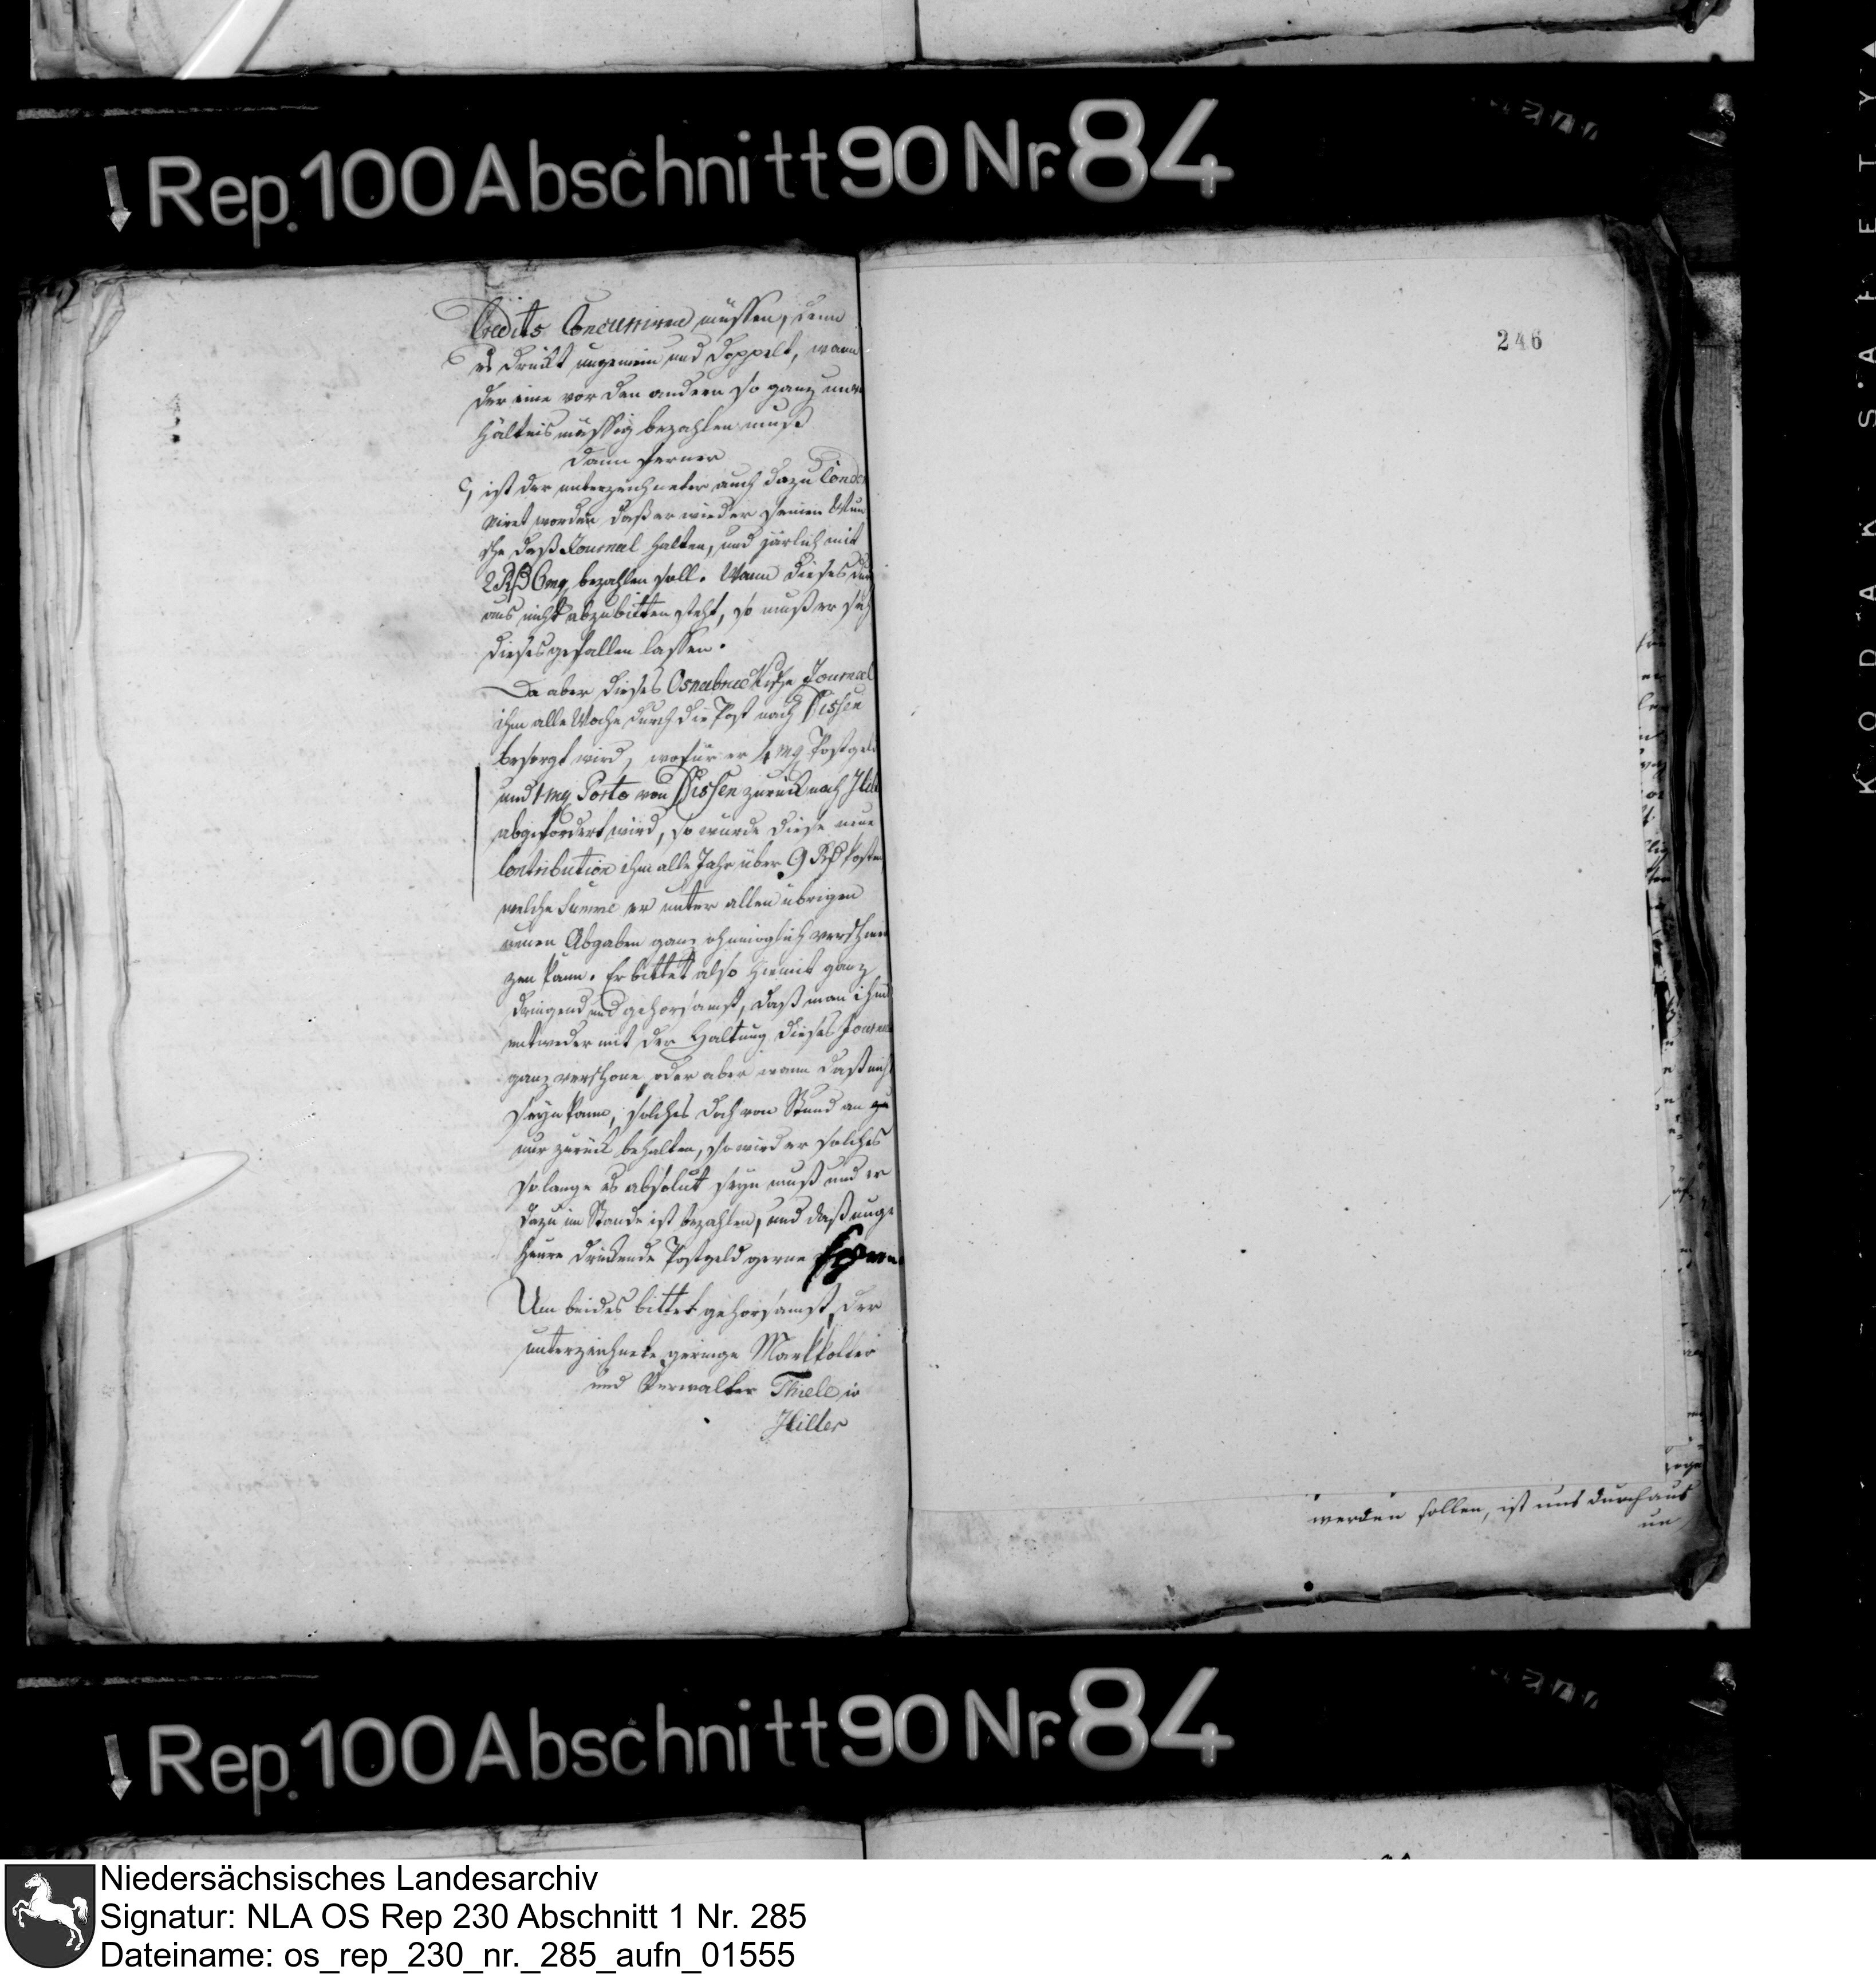 Rep. 100 Abschnitt 90 Nr. 84
Credits Concurriren müssen, denn
es drückt ungemein und doppelt, wann
der eine vor den andern so ganz unver
hältnis mässig bezahlen muß
Dann ferner
c, ist der unterzeichneter auch dazu Conde
niret worden daß er wieder seinen Wun
sche daß Journal halten, und järlich mit
2 Rß 6 mg bezahlen soll. Wann dieses dur
aus nicht abzubitten steht, so muß er sich
dieses gefallen lassen.
Da aber dieses Osnabrückische Journal
ihm alle Woche durch die Post nach Dissen
besorgt wird, wofür er 4 mg Postgeld
und 1 mg Porto von Dissen zurück nach Hilt
abgefordert wird, so würde diese neue
Contribution ihm alle Jahr über 9 Rß kosten
welche Summe er unter allen übrigen
neuen Abgaben ganz ohnmöglich verschmer
zen kann. Er bittet also hiemit ganz
dringend und gehorsamst, daß man ihm
entweder mit der Haltung dieses Journal
ganz verschone, oder aber wann daß nicht
seyn kann, solches doch von Stund an
nur zurück behalten, so wird er solches
so lange es absolut seyn muß und er
dazu im Stande ist bezahlen, und daß unge
heure drückende Postgeld gerne
Um beides bittet gehorsamst der
unterzeichnete geringe Markkötter
und Verwalter Thiele in
Hilter
246
werden sollen, ist uns durchaus
un
Rep. 100 Abschnitt 90 Nr. 84
KODAK SAFETY
Niedersächsisches Landesarchiv
Signatur: NLA OS Rep 230 Abschnitt 1 Nr. 285
Dateiname: os_rep_230_nr._285_aufn_01555